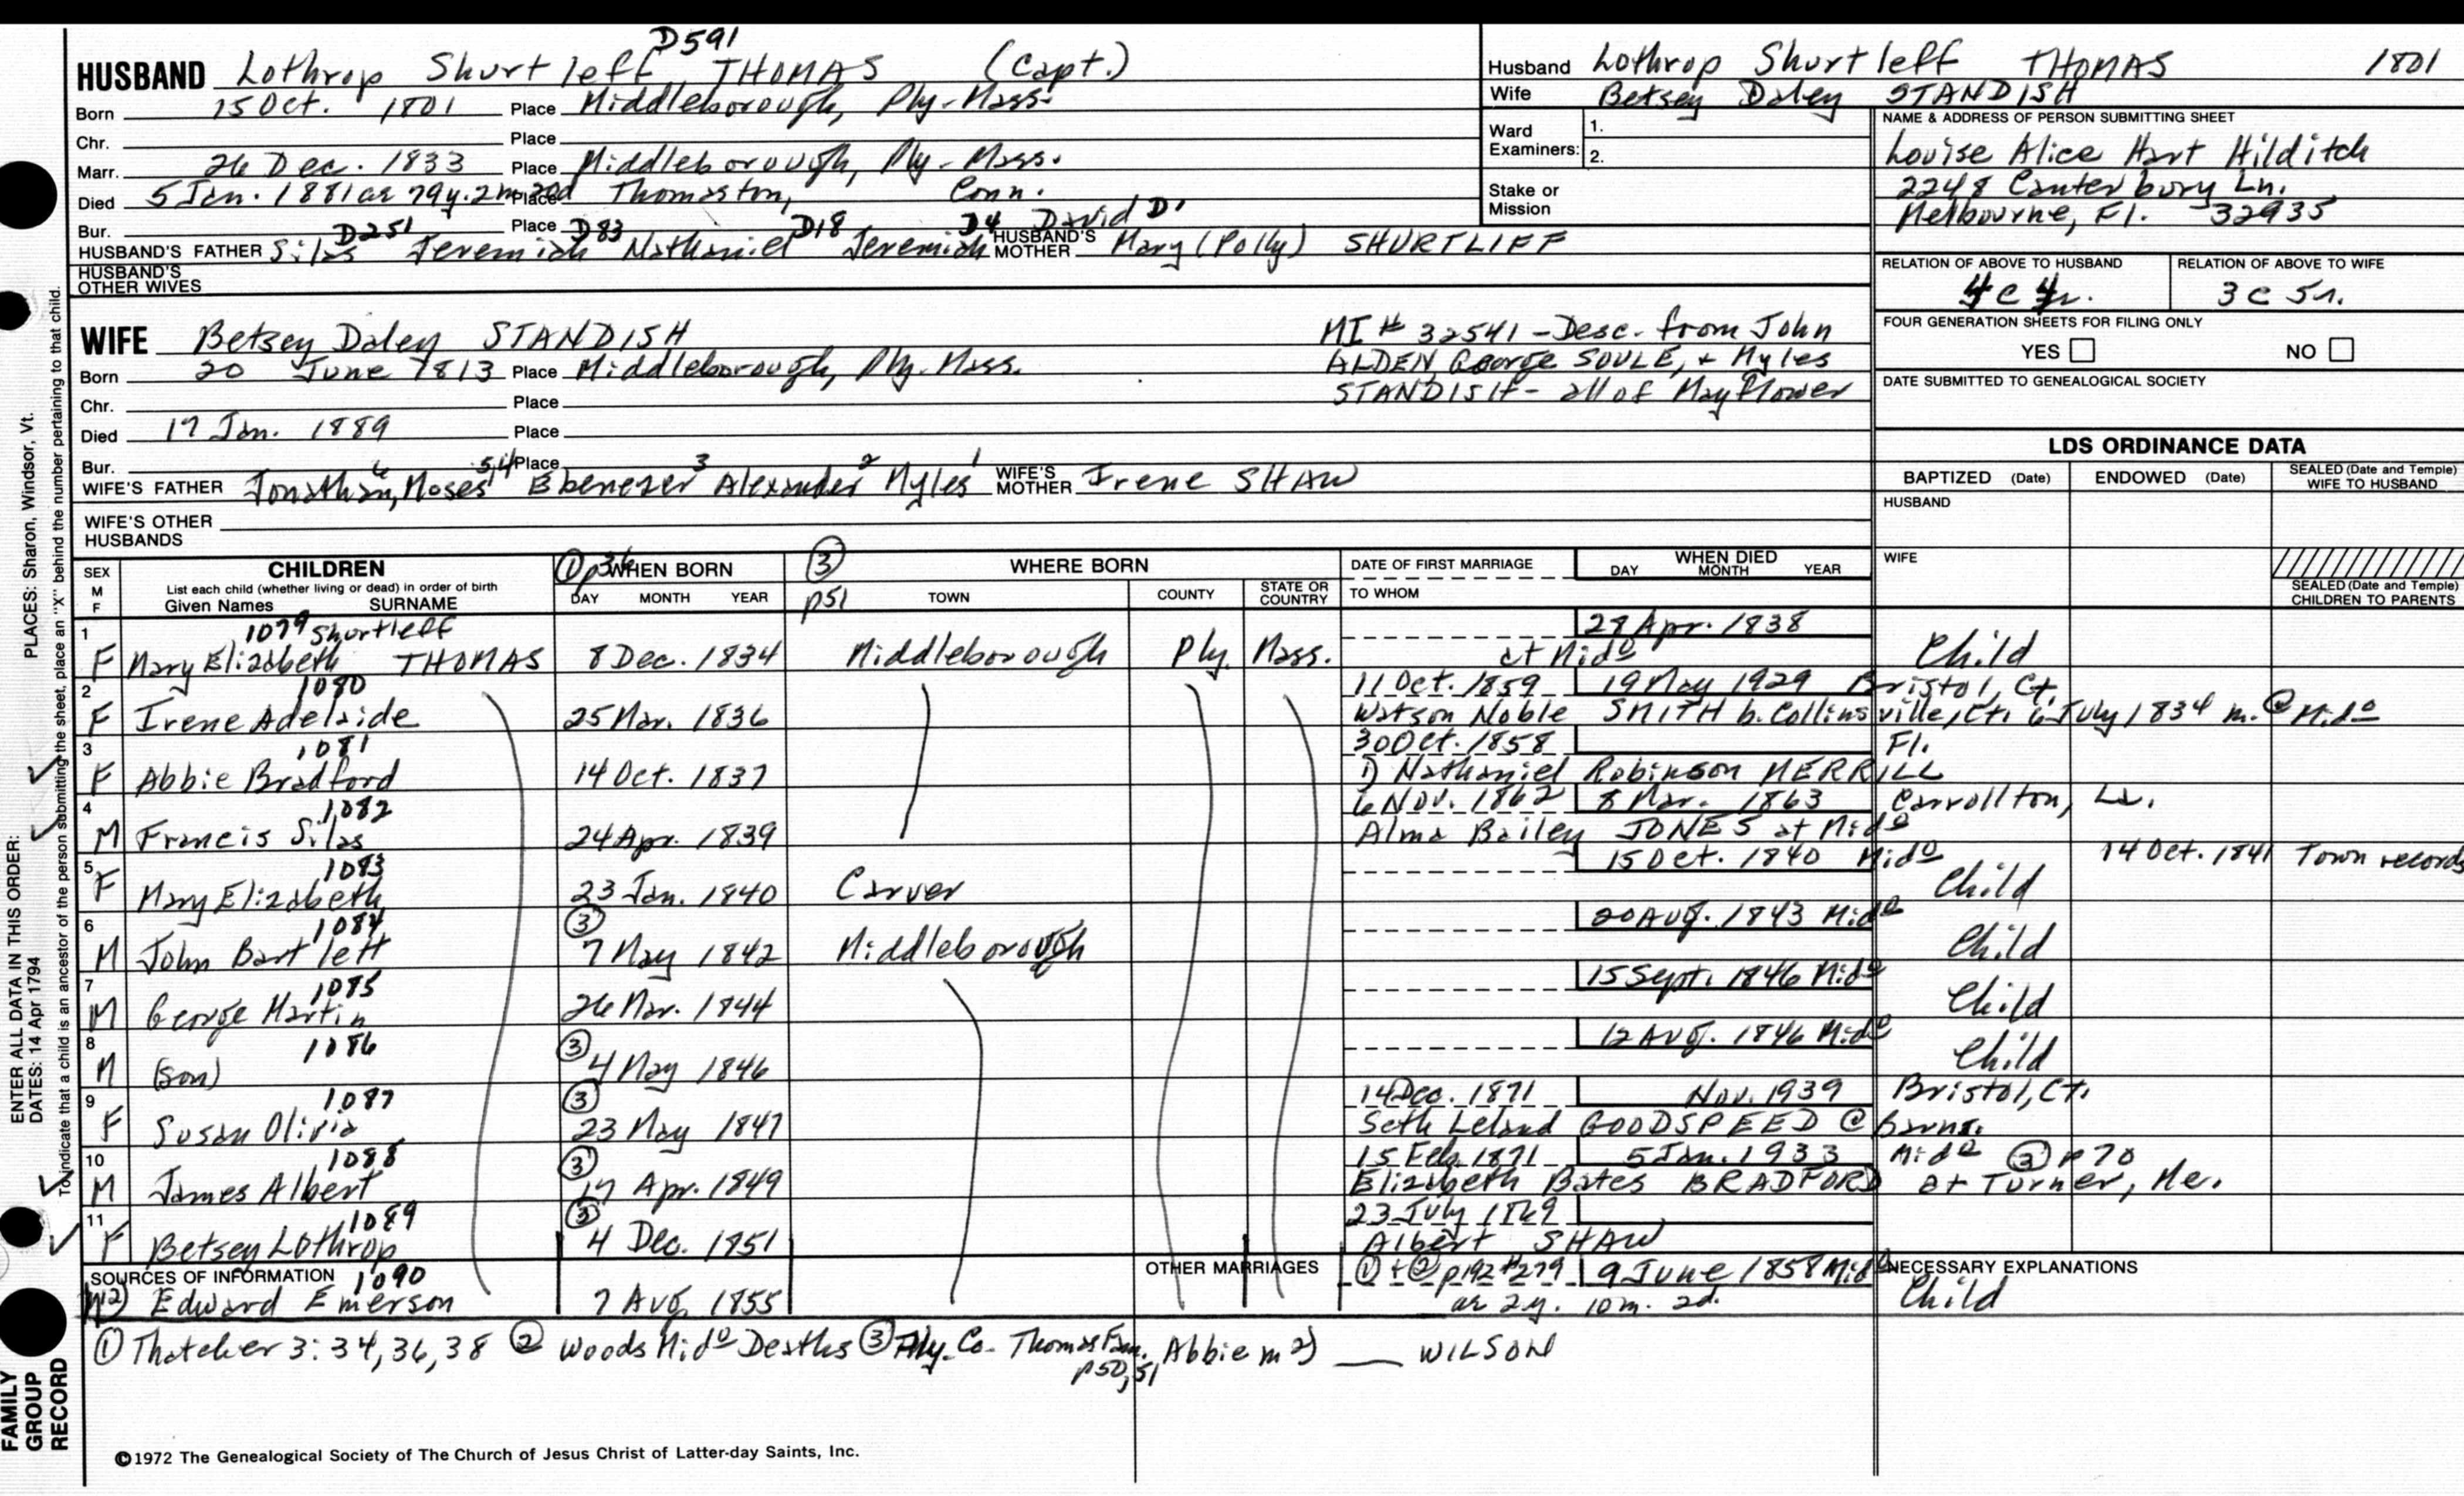 D591
HUSBAND Lothrop Shurtleff THOMAS (Capt.)
Born 15 Oct. 1801 Place Middleborough, Ply-Mass.
Chr. Place
Marr. 26 Dec. 1833 Place Middleborough, Ply-Mass.
Died 5 Jan. 1881 ae 79y. 2m. 20d Place Thomaston, Conn.
Bur. Place
D251 D83 D18 D4 David D'
HUSBAND'S FATHER Silas Jeremiah Nathaniel Jeremiah HUSBAND'S MOTHER Mary (Polly) SHURTLIFF
HUSBAND'S OTHER WIVES
Husband Lothrop Shurtleff THOMAS 1801
Wife Betsey Daley STANDISH
Ward Examiners: 1. 2.
Stake or Mission
NAME & ADDRESS OF PERSON SUBMITTING SHEET
Louise Alice Hart Hilditch
2248 Canterbury Ln.
Melbourne, Fl. 32935
RELATION OF ABOVE TO HUSBAND RELATION OF ABOVE TO WIFE
4 c 4r. 3 c 5r.
FOUR GENERATION SHEETS FOR FILING ONLY
YES NO
DATE SUBMITTED TO GENEALOGICAL SOCIETY
WIFE Betsey Daley STANDISH
Born 20 June 1813 Place Middleborough, Ply. Mass.
Chr. Place
Died 17 Jan. 1889 Place
Bur. Place
6 5,4 3 2 1
WIFE'S FATHER Jonathan, Moses Ebenezer Alexander Myles WIFE'S MOTHER Irene SHAW
WIFE'S OTHER HUSBANDS
MI # 32541 - Desc. from John
ALDEN, George SOULE, + Myles
STANDISH - all of Mayflower
LDS ORDINANCE DATA
BAPTIZED (Date) ENDOWED (Date) SEALED (Date and Temple) WIFE TO HUSBAND
HUSBAND
WIFE
SEALED (Date and Temple) CHILDREN TO PARENTS
SEX M F CHILDREN
List each child (whether living or dead) in order of birth
Given Names SURNAME
① p36 WHEN BORN
DAY MONTH YEAR
③ p51 WHERE BORN
TOWN COUNTY STATE OR COUNTRY
DATE OF FIRST MARRIAGE
TO WHOM
WHEN DIED
DAY MONTH YEAR
1 1079 Shurtleff 27 Apr. 1838
F Mary Elizabeth THOMAS 8 Dec. 1834 Middleborough Ply. Mass. at Mido Child
2 1080 11 Oct. 1859 19 May 1929 Bristol, Ct.
F Irene Adelaide 25 Mar. 1836 Watson Noble SMITH b. Collinsville, Ct. 6 July 1834 m. @ Mido
3 1081 30 Oct. 1858 Fl.
F Abbie Bradford 14 Oct. 1837 1) Nathaniel Robinson MERRILL
4 1082 6 Nov. 1862 8 Mar. 1863 Carrollton, La.
M Francis Silas 24 Apr. 1839 Alma Bailey JONES at Mido
5 1083 15 Oct. 1840 Mido 14 Oct. 1841 Town records
F Mary Elizabeth 23 Jan. 1840 Carver Child
6 1084 ③ 20 Aug. 1843 Mido
M John Bartlett 7 May 1842 Middleborough Child
7 1085 15 Sept. 1846 Mido
M George Martin 26 Mar. 1844 Child
8 1086 ③ 12 Aug. 1846 Mido
M (son) 4 May 1846 Child
9 1087 ③ 14 Dec. 1871 Nov. 1939 Bristol, Ct.
F Susan Olivia 23 May 1847 Seth Leland GOODSPEED @ Barns.
10 1088 ③ 15 Feb. 1871 5 Jan. 1933 Mido ③ p 70
M James Albert 17 Apr. 1849 Elizabeth Bates BRADFORD at Turner, Me.
11 1089 ③ 23 July 1869
F Betsey Lothrop 4 Dec. 1851 Albert SHAW
SOURCES OF INFORMATION 1090 OTHER MARRIAGES ① + ② p192 #279 9 June 1858 Mido NECESSARY EXPLANATIONS
M 12) Edward Emerson 7 Aug 1855 ae 2y. 10m. 2d. Child
① Thatcher 3: 34, 36, 38 ② Woods Mido Deaths ③ Ply. Co. Thomas Fam. p50, 51 Abbie m 2) ___ WILSON
©1972 The Genealogical Society of The Church of Jesus Christ of Latter-day Saints, Inc.
FAMILY GROUP RECORD
ENTER ALL DATA IN THIS ORDER:
DATES: 14 Apr 1794
PLACES: Sharon, Windsor, Vt.
To indicate that a child is an ancestor of the person submitting the sheet, place an "X" behind the number pertaining to that child.